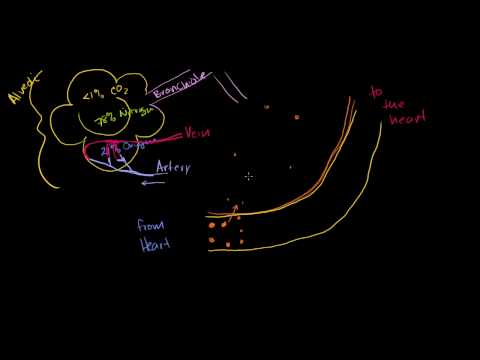 Alveoli
<1% CO2
78% Nitrogen
21% Oxygen
Bronchiole
Vein
Artery
from
Heart
to
the
heart